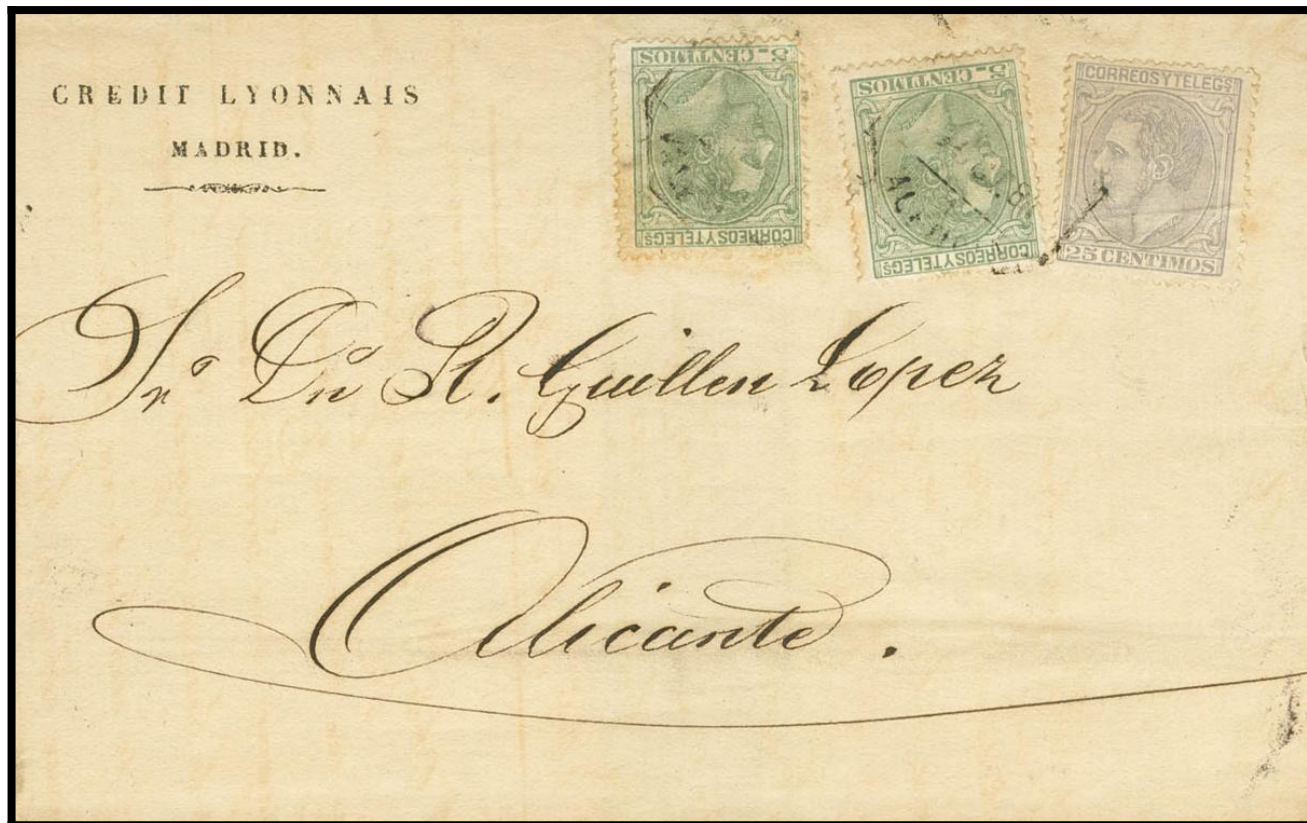 CREDIT LYONNAIS
MADRID.
5 CENTIMOS
CORREOS Y TELEGS
5 CENTIMOS
CORREOS Y TELEGS
CORREOS Y TELEGS
25 CENTIMOS
Sr Dn R. Guillen Lopez
Alicante.